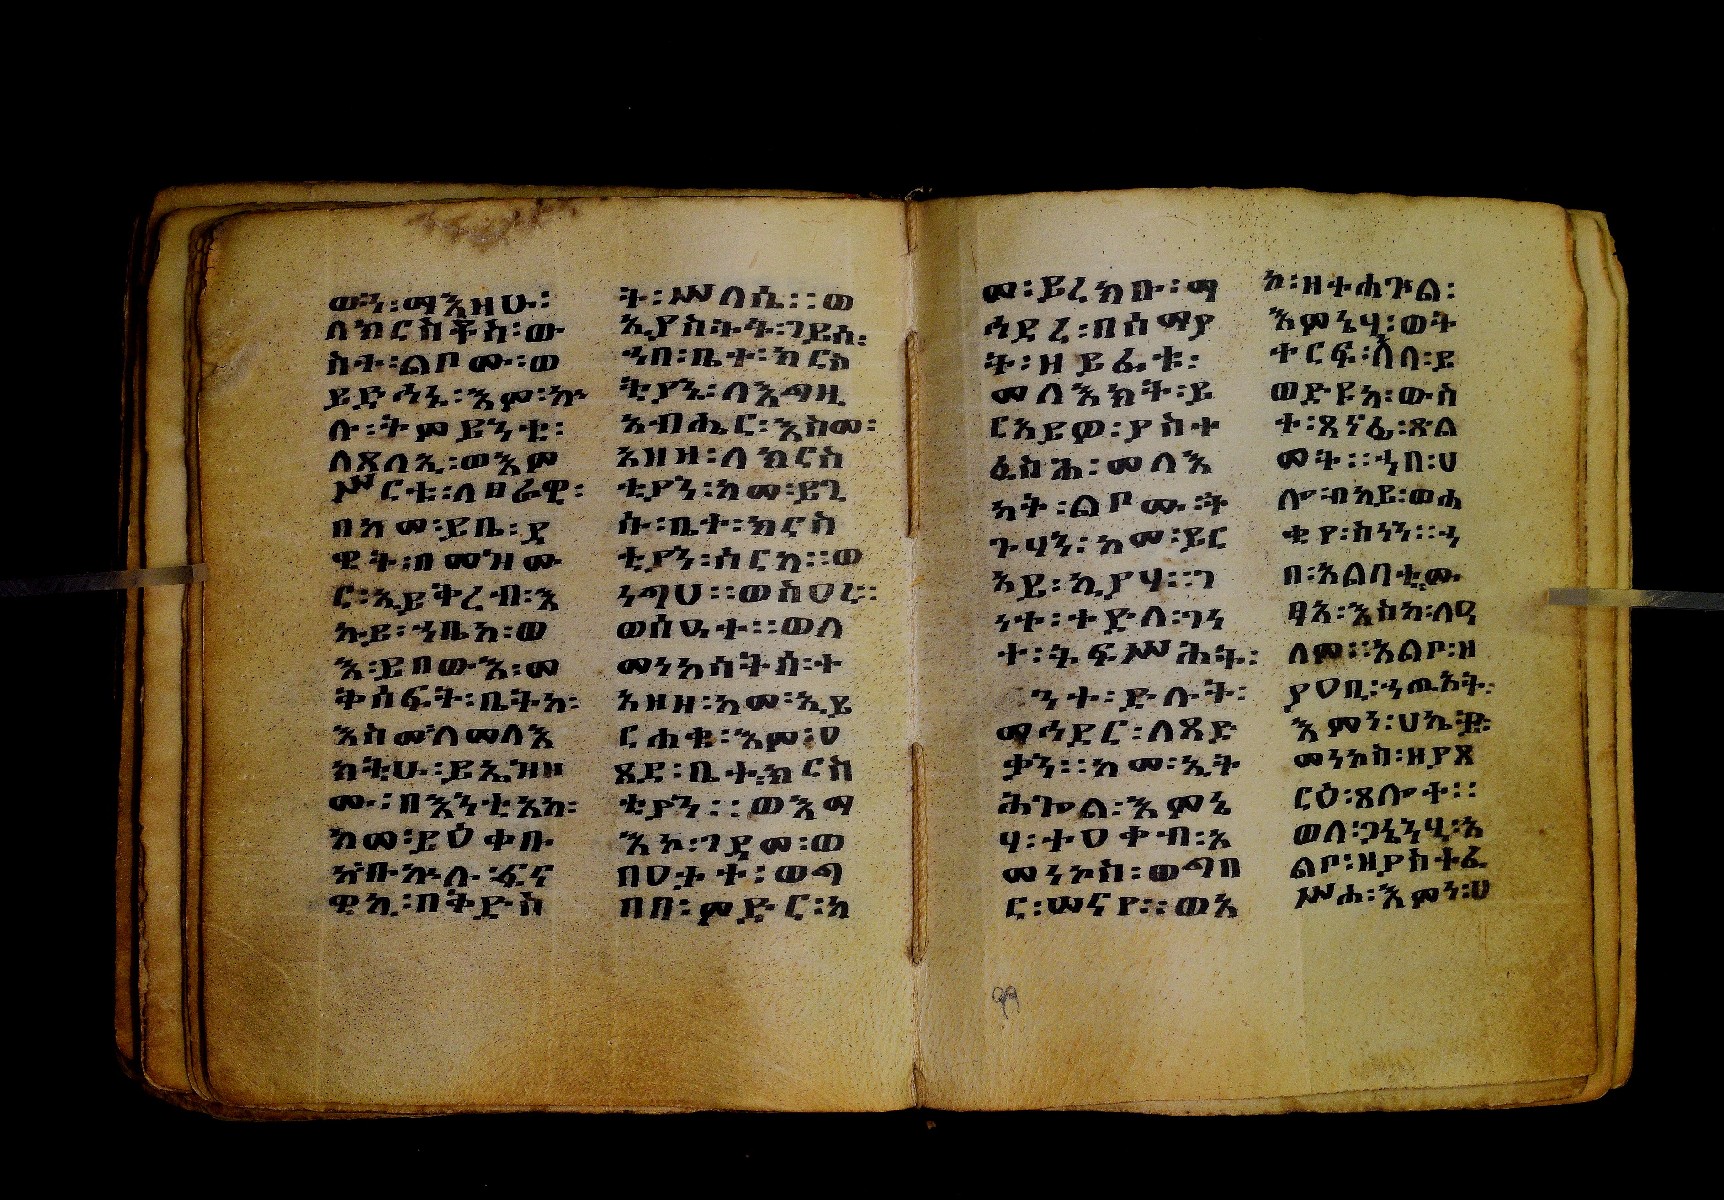 ውን፡ማእዘሁ፡
ለክርስቶስ፡ው
ስተ፡ልቦሙ፡ወ
ይድኅኒ፡እም፡ኵ
ሉ፡ትምይንቲ፡
ለጸላኢ፡ወእም
ሥርቱ፡ለዘራዊ፡
በከመ፡ይቤ፡ዳ
ዊት፡በመዝሙ
ር፡ኢይቅረብ፡እ
ኩይ፡ኀቤከ፡ወ
ኢ፡ይበውእ፡መ
ቅሰፍት፡ቤትከ፡
እስመ፡ለመላእ
ክቲሁ፡ይኤዝዞ
ሙ፡በእንቲአከ፡
ከመ፡ይዕቀቡ
ከ፡በኵሉ፡ፍና
ዊከ፡በትድስ
ት፡ሥላሴ፡፡ወ
ኢያስተት፡ገይሰ፡
ኀበ፡ቤተ፡ክርስ
ቲያን፡ለእግዚ
አብሔር፡እስመ፡
አዘዘ፡ለክርስ
ቲያን፡ከመ፡ይጊ
ሱ፡ቤተ፡ክርስ
ቲያን፡ሰርከ፡፡ወ
ነግህ፡፡ወስዐረ፡፡
ወሰዱተ፡፡ወለ
መነኮሳትሰ፡ተ
አዘዘ፡ከመ፡ኢይ
ርሐቁ፡እም፡ዐ
ጸደ፡ቤተ፡ክርስ
ቲያን፡፡ወእማ
እኮ፡ገዳመ፡ወ
በዐታተ፡ወግ
በበ፡ምድር፡ከ
መ፡ይረክቡ፡ማ
ኅደረ፡በሰማያ
ት፡ዘይፌቱ፡
መላእክት፡ይ
ርአይዎ፡ያስተ
ፌስሕ፡መላእ
ክት፡ልቦሙ፡ት
ጉሃን፡ከመ፡ይር
አይ፡ኢያሃ፡፡ገ
ነተ፡ተድላ፡ገነ
ተ፡ትፍሥሕት፡
ንተ፡ድሉት፡
ማኅደር፡ለጻድ
ቃን፡፡ከመ፡ኢት
ሕጐል፡እምኔ
ሃ፡ተዐቀብ፡አ
መነኮስ፡ወግበ
ር፡ሠናየ፡፡ወእ
ከ፡ዘተሐጕል፡
እምኔሃ፡ወት
ተርፍ፡ለባ፡ይ
ወድዩከ፡ውስ
ተ፡ጸናፌ፡ጽል
መት፡፡ኀበ፡ሀ
ሎ፡ብካይ፡ወሐ
ቂየ፡ስነን፡፡ኀ
በ፡አልባቲ፡ሙ
ፃእ፡እስከ፡ለዓ
ለም፡፡እልቦ፡ዘ
ያዐቢ፡ኀጢአት፡
እምን፡ሀኬት፡
መነኮስ፡ዘያጸ
ርዕ፡ጸሎተ፡፡
ወለ፡ጋኔንሂ፡አ
ልቦ፡ዘያስተፌ
ሥሖ፡እምን፡ሀ
99